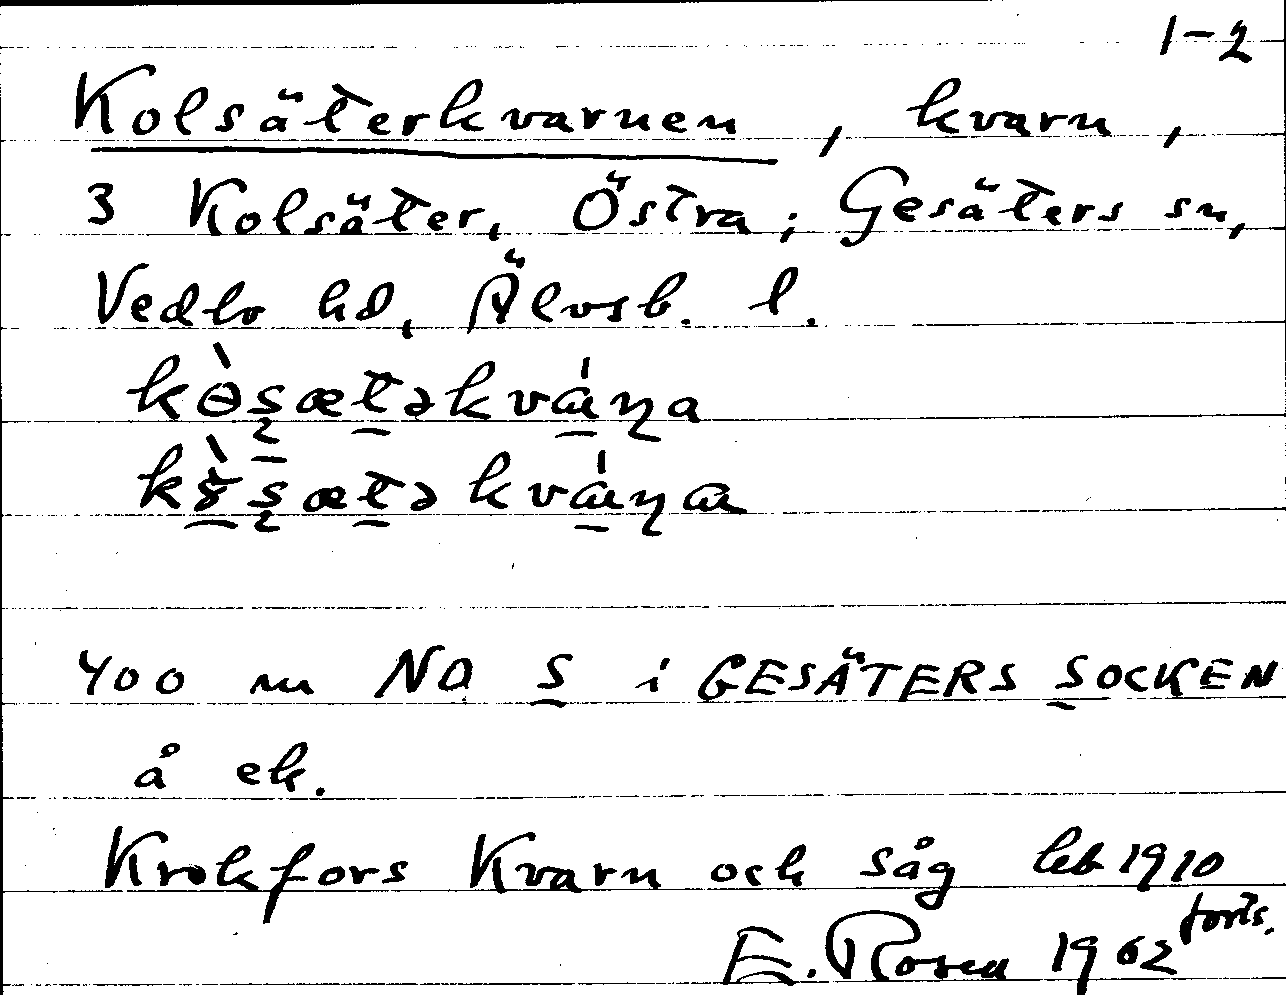 1-2
Kolsäterkvarnen, kvarn,
3 Kolsäter, Östra; Gesäters sn,
Vedbo hd, Älvsb. l.
400 m NO S i GESÄTERS SOCKEN
å ek.
Krokfors Kvarn och såg hkb 1910
forts.
E. Rosen 1962